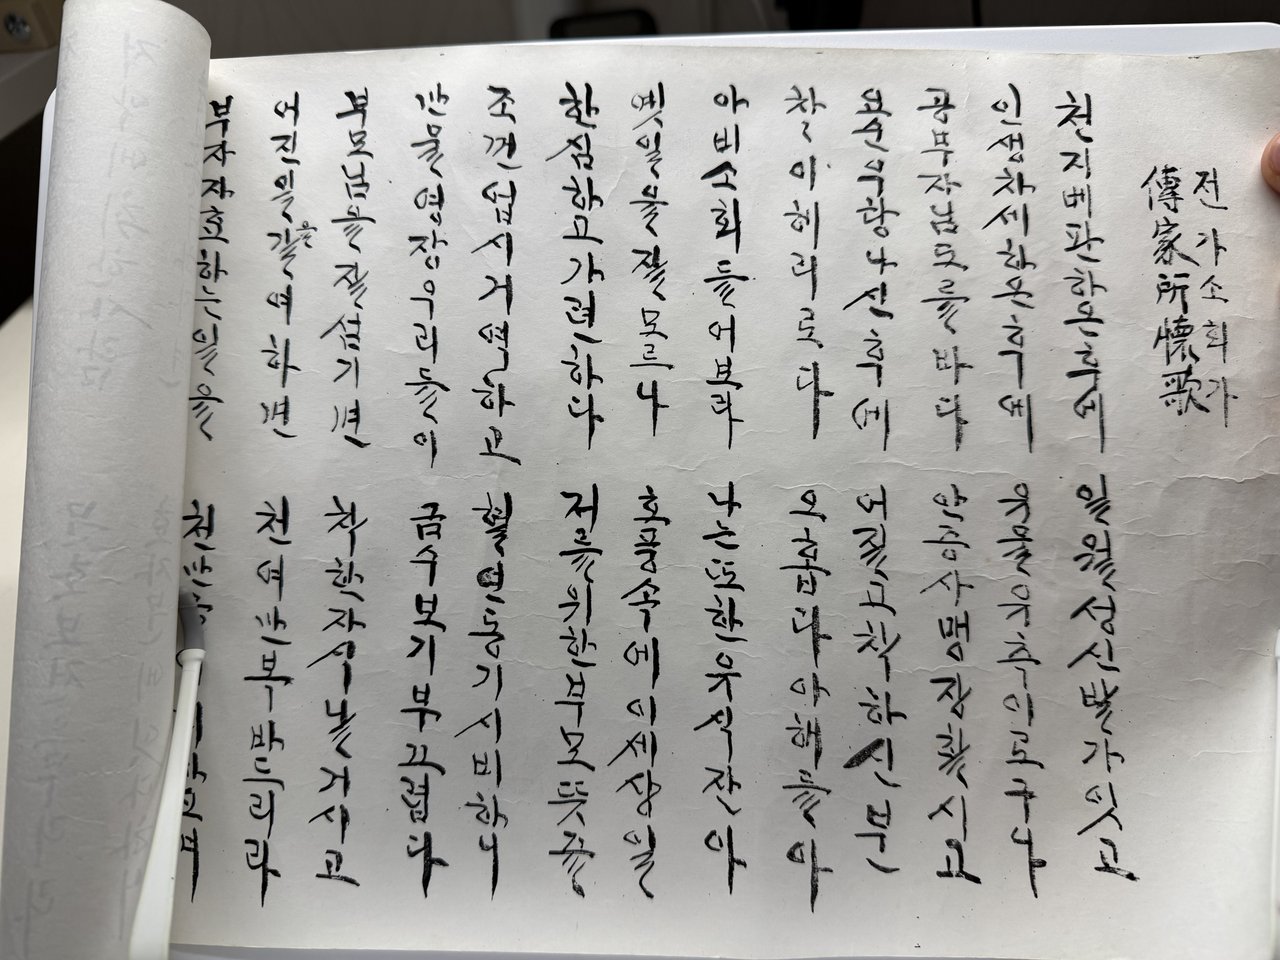 전가소회가
傳家所懷歌
천지베판하온후에 일월성신발가잇고
인생차세하온후에 유물유측이로구나
공부자님도를바다 안증사맹장찰시고
요순우탕나신후에 어질고착하신분
찰이헤리로다 오홉다아해들아
아비소회들어보라 나는또한유식잔아
옛일을잘모르나 이세상일
한심하고가련하다 저를위한부모뜻즐
조껀업시거연하고 시비하니
만물영장우리들이 금수보기부끄럽다
부모님을잘섬기면 착한자식날거시고
어진일을 하면 바드리라
부자자효하는일을